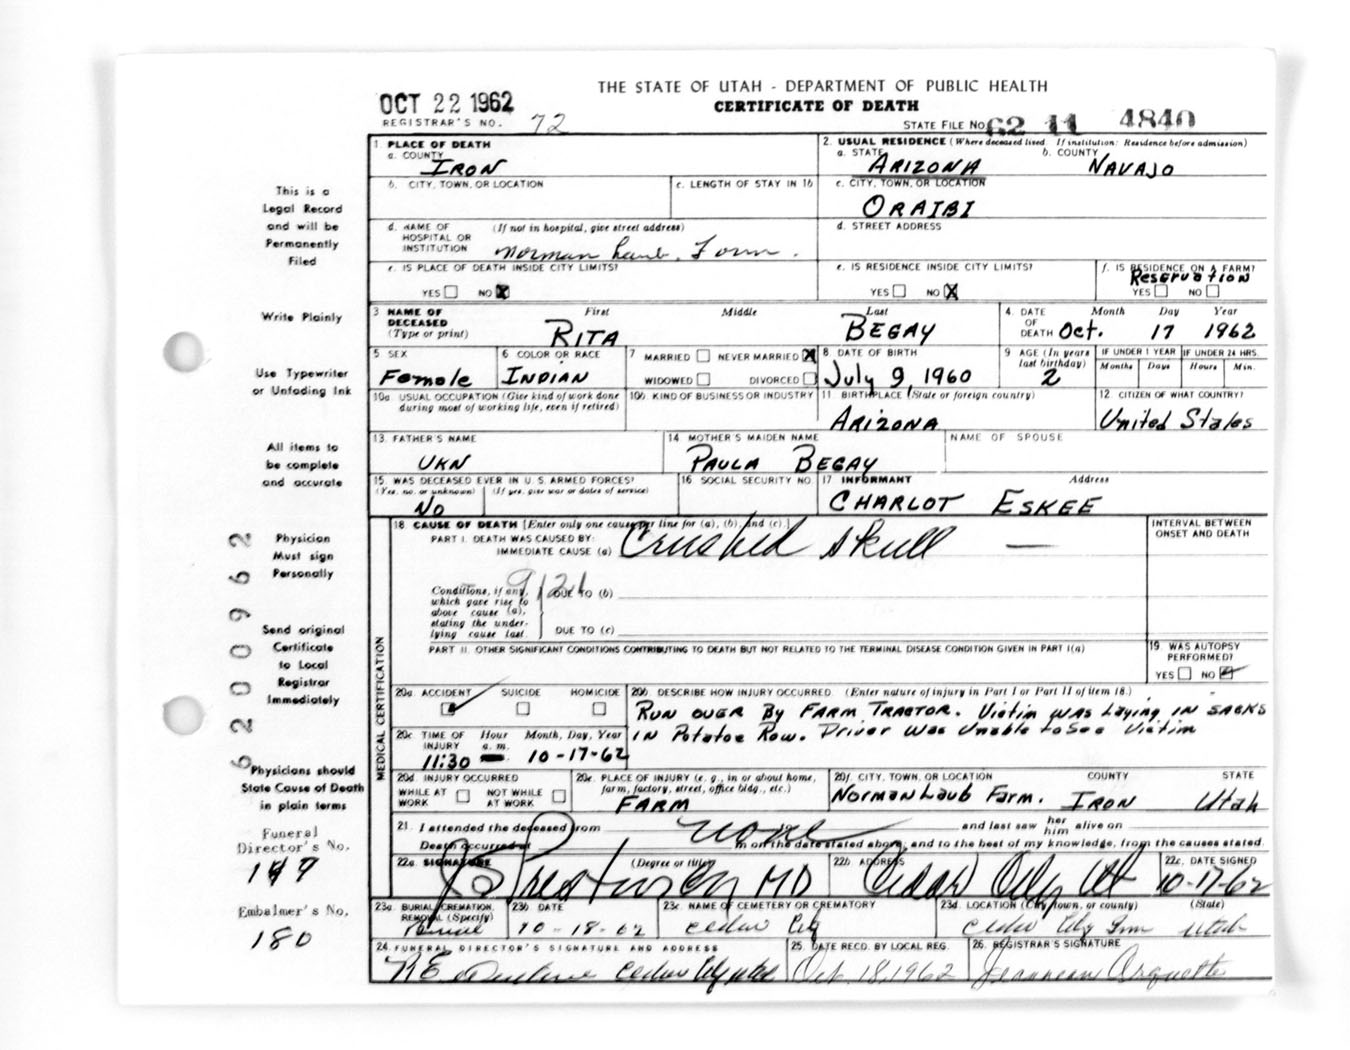 THE STATE OF UTAH - DEPARTMENT OF PUBLIC HEALTH
OCT 22 1962
CERTIFICATE OF DEATH
REGISTRAR'S NO. 72
STATE FILE NO. 62 11 4840
1. PLACE OF DEATH
a. COUNTY
IRON
2. USUAL RESIDENCE (Where deceased lived. If institution: Residence before admission)
a. STATE b. COUNTY
ARIZONA NAVAJO
b. CITY, TOWN, OR LOCATION c. LENGTH OF STAY IN 1b
c. CITY, TOWN, OR LOCATION
ORAIBI
d. NAME OF HOSPITAL OR INSTITUTION (If not in hospital, give street address)
Norman Laub. Farm.
d. STREET ADDRESS
e. IS PLACE OF DEATH INSIDE CITY LIMITS?
YES NO X
e. IS RESIDENCE INSIDE CITY LIMITS?
YES NO X
f. IS RESIDENCE ON A FARM?
Reservation
YES NO
3 NAME OF DECEASED (Type or print) First Middle Last
RITA BEGAY
4. DATE OF DEATH Month Day Year
Oct. 17 1962
5 SEX
Female
6 COLOR OR RACE
INDIAN
7 MARRIED NEVER MARRIED X
WIDOWED DIVORCED
8 DATE OF BIRTH
July 9, 1960
9 AGE (In years last birthday)
2
IF UNDER 1 YEAR IF UNDER 24 HRS.
Months Days Hours Min.
10a. USUAL OCCUPATION (Give kind of work done during most of working life, even if retired)
10b. KIND OF BUSINESS OR INDUSTRY
11. BIRTHPLACE (State or foreign country)
ARIZONA
12. CITIZEN OF WHAT COUNTRY?
United States
13. FATHER'S NAME
UKN
14. MOTHER'S MAIDEN NAME
PAULA BEGAY
NAME OF SPOUSE
15. WAS DECEASED EVER IN U.S. ARMED FORCES?
(Yes, no, or unknown) (If yes, give war or dates of service)
No
16 SOCIAL SECURITY NO.
17 INFORMANT Address
CHARLOT ESKEE
18. CAUSE OF DEATH [Enter only one cause per line for (a), (b), and (c).]
PART I. DEATH WAS CAUSED BY:
IMMEDIATE CAUSE (a) Crushed skull
INTERVAL BETWEEN ONSET AND DEATH
912.1
Conditions, if any, which gave rise to above cause (a), stating the underlying cause last.
DUE TO (b)
DUE TO (c)
PART II. OTHER SIGNIFICANT CONDITIONS CONTRIBUTING TO DEATH BUT NOT RELATED TO THE TERMINAL DISEASE CONDITION GIVEN IN PART I(a)
19. WAS AUTOPSY PERFORMED?
YES NO
MEDICAL CERTIFICATION
20a. ACCIDENT SUICIDE HOMICIDE
20b. DESCRIBE HOW INJURY OCCURRED. (Enter nature of injury in Part I or Part II of item 18.)
RUN OVER By FARM TRACTOR. Victim was Laying IN SACKS
IN Potatoe Row. Driver Was Unable to See Victim
20c. TIME OF INJURY Hour a.m. Month, Day, Year
11:30 10-17-62
20d. INJURY OCCURRED
WHILE AT WORK NOT WHILE AT WORK
20e. PLACE OF INJURY (e. g., in or about home, farm, factory, street, office bldg., etc.)
FARM
20f. CITY, TOWN, OR LOCATION COUNTY STATE
Norman Laub Farm. IRON Utah
21. I attended the deceased from none and last saw her him alive on
Death occurred at m on the date stated above, and to the best of my knowledge, from the causes stated.
22a. SIGNATURE (Degree or title)
MD
22b ADDRESS
Cedar City Ut
22c. DATE SIGNED
10-17-62
23a. BURIAL, CREMATION, REMOVAL (Specify)
Burial
23b DATE
10-18-62
23c. NAME OF CEMETERY OR CREMATORY
Cedar City
23d. LOCATION (City, town, or county) (State)
Cedar City Iron Utah
24 FUNERAL DIRECTOR'S SIGNATURE AND ADDRESS
Cedar City Utah
25. DATE RECD. BY LOCAL REG.
Oct. 18, 1962
26. REGISTRAR'S SIGNATURE
This is a
Legal Record
and will be
Permanently
Filed
Write Plainly
Use Typewriter
or Unfading Ink
All items to
be complete
and accurate
Physician
Must sign
Personally
Send original
Certificate
to Local
Registrar
Immediately
Physicians should
State Cause of Death
in plain terms
Funeral
Director's No.
Embalmer's No.
180
62 00962